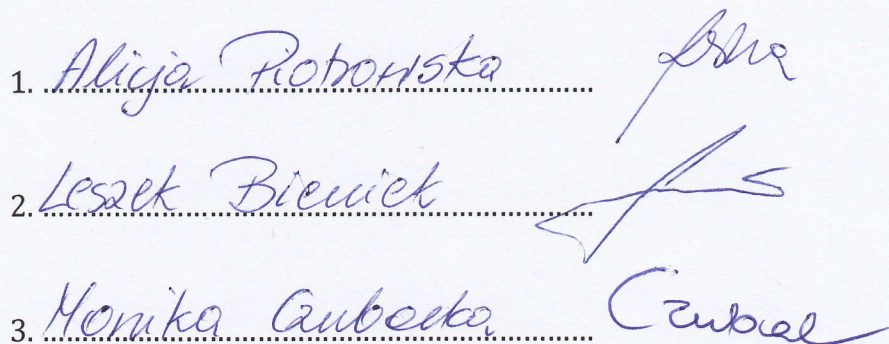 1. Alicja Piotrowska
2. Leszek Bieniek
3. Monika Czubacka